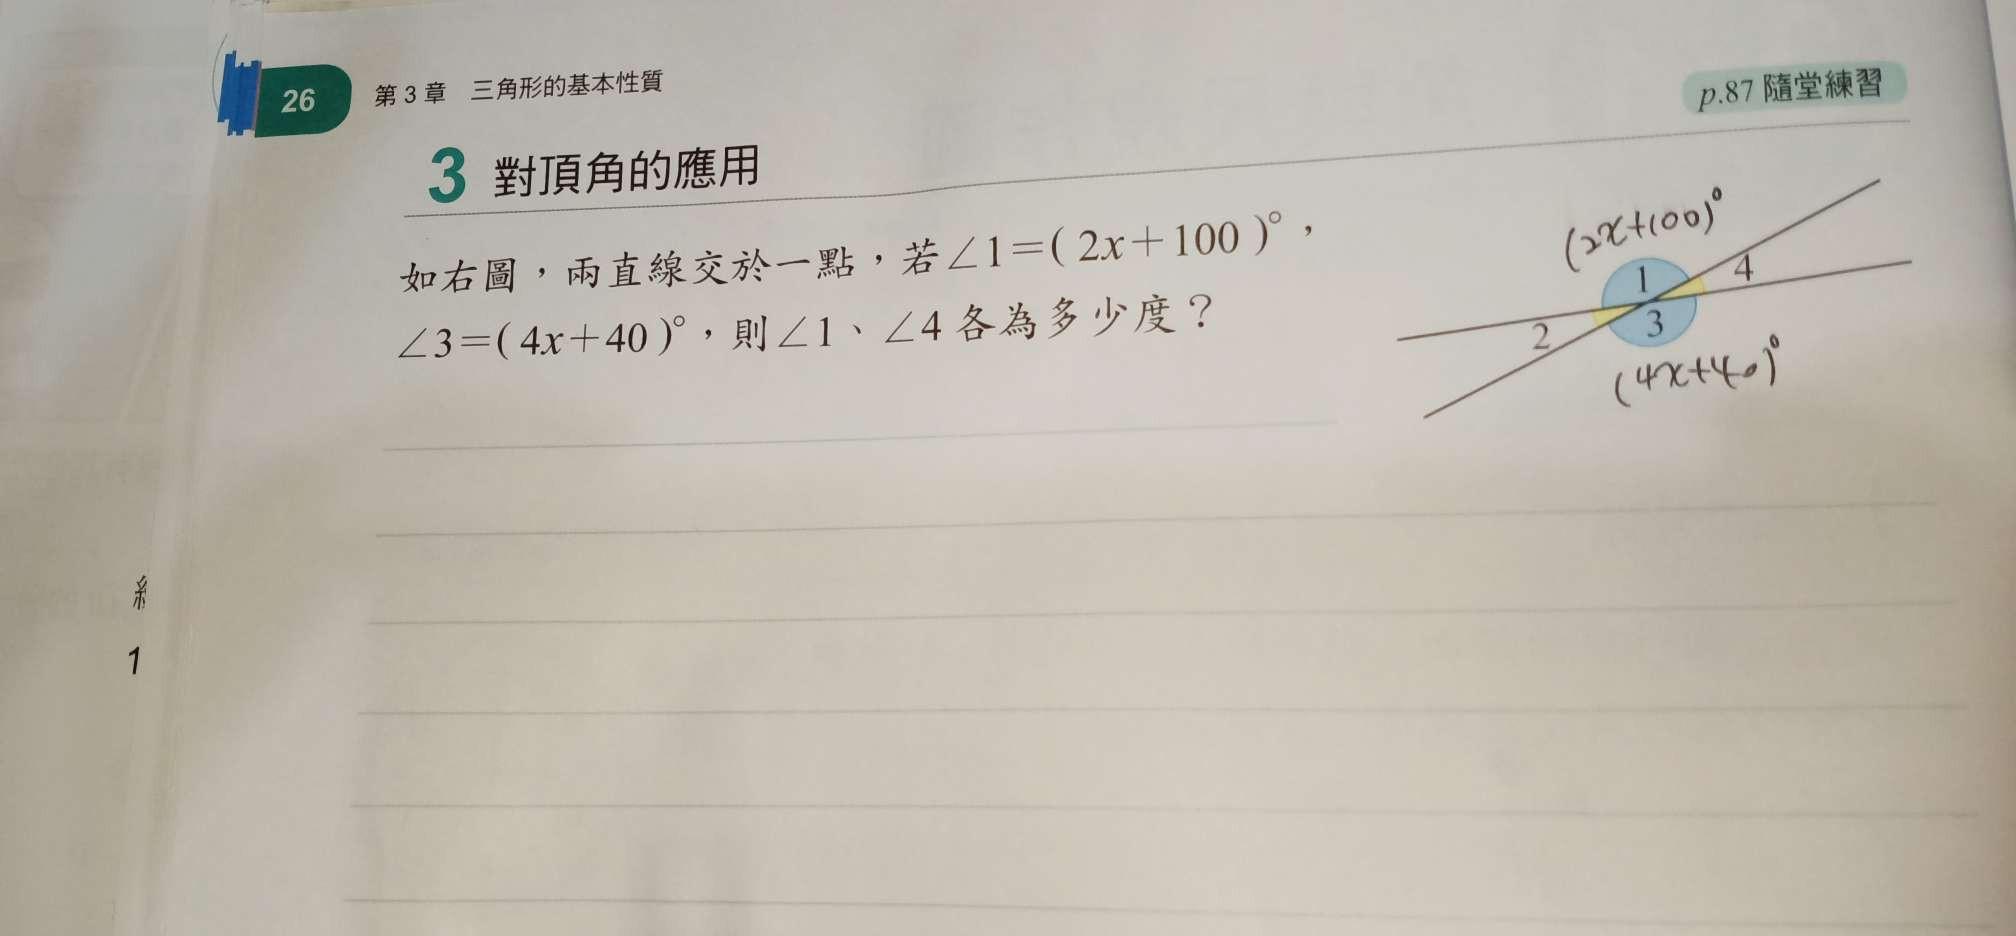 26 第3章 三角形的基本性質
p.87 隨堂練習
3 對頂角的應用
如右圖，兩直線交於一點，若∠1=( 2x+100 )°，
∠3=( 4x+40 )°，則∠1、∠4 各為多少度？
(2x+100)°
1
4
2
3
(4x+40)°
1